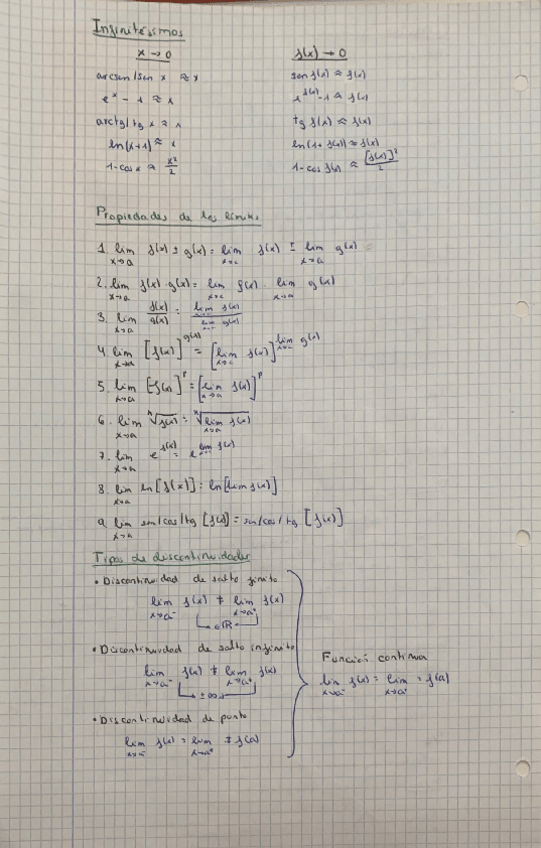 Infinitésimos
x → 0
f(x) → 0
arcsen/sen x ≈ x
sen f(x) ≈ f(x)
e^x - 1 ≈ x
e^f(x) - 1 ≈ f(x)
arctg/tg x ≈ x
tg f(x) ≈ f(x)
ln(x+1) ≈ x
ln(1+ f(x)) ≈ f(x)
1-cos x ≈ x²/2
1-cos f(x) ≈ [f(x)]²/2
Propiedades de los límites
1. lim x→a f(x) ± g(x) = lim x→a f(x) ± lim x→a g(x)
2. lim x→a f(x) · g(x) = lim x→a f(x) · lim x→a g(x)
3. lim x→a f(x)/g(x) = lim f(x)/lim g(x)
4. lim x→a [f(x)]^g(x) = [lim x→a f(x)]^lim x→a g(x)
5. lim x→a [f(x)]^p = [lim x→a f(x)]^p
6. lim x→a ⁿ√f(x) = ⁿ√lim x→a f(x)
7. lim x→a e^f(x) = e^lim f(x)
8. lim x→a ln[f(x)] = ln[lim f(x)]
9. lim x→a sen/cos/tg [f(x)] = sen/cos/tg [f(x)]
Tipos de discontinuidades
• Discontinuidad de salto finito
lim x→a⁻ f(x) ≠ lim x→a⁺ f(x)
∈ℝ
• Discontinuidad de salto infinito
lim x→a⁻ f(x) ≠ lim x→a⁺ f(x)
±∞
Función continua
lim x→a⁻ f(x) = lim x→a⁺ = f(a)
• Discontinuidad de punto
lim x→a⁻ f(x) = lim x→a⁺ ≠ f(a)